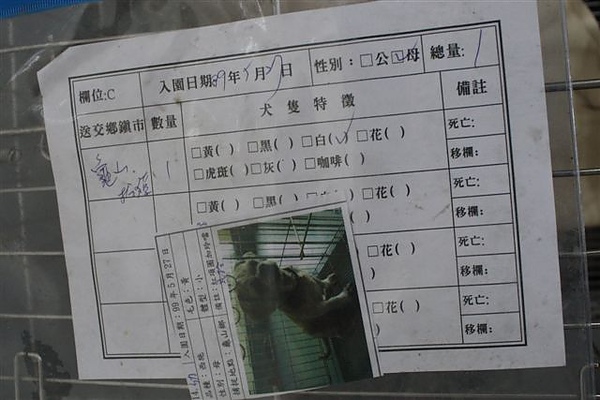 欄位:C 入園日期:99年5月27日 性別:□公☑母 總量:1
送交鄉鎮市 數量 犬隻特徵 備註
龜山 1 □黃( ) □黑( ) □白(✓) □花( ) 死亡:
□虎斑( ) □灰( ) □咖啡( ) 移欄:
□黃( ) □黑( ) □花( ) 死亡:
( ) 移欄:
□花( ) 死亡:
) 移欄:
□花( ) 死亡:
) 移欄:
入園日期:99年5月27日
毛色:黃
體型:小
備註:紅項圈加鈴噹
品種:西施
性別:母
捕捉地點:龜山鄉